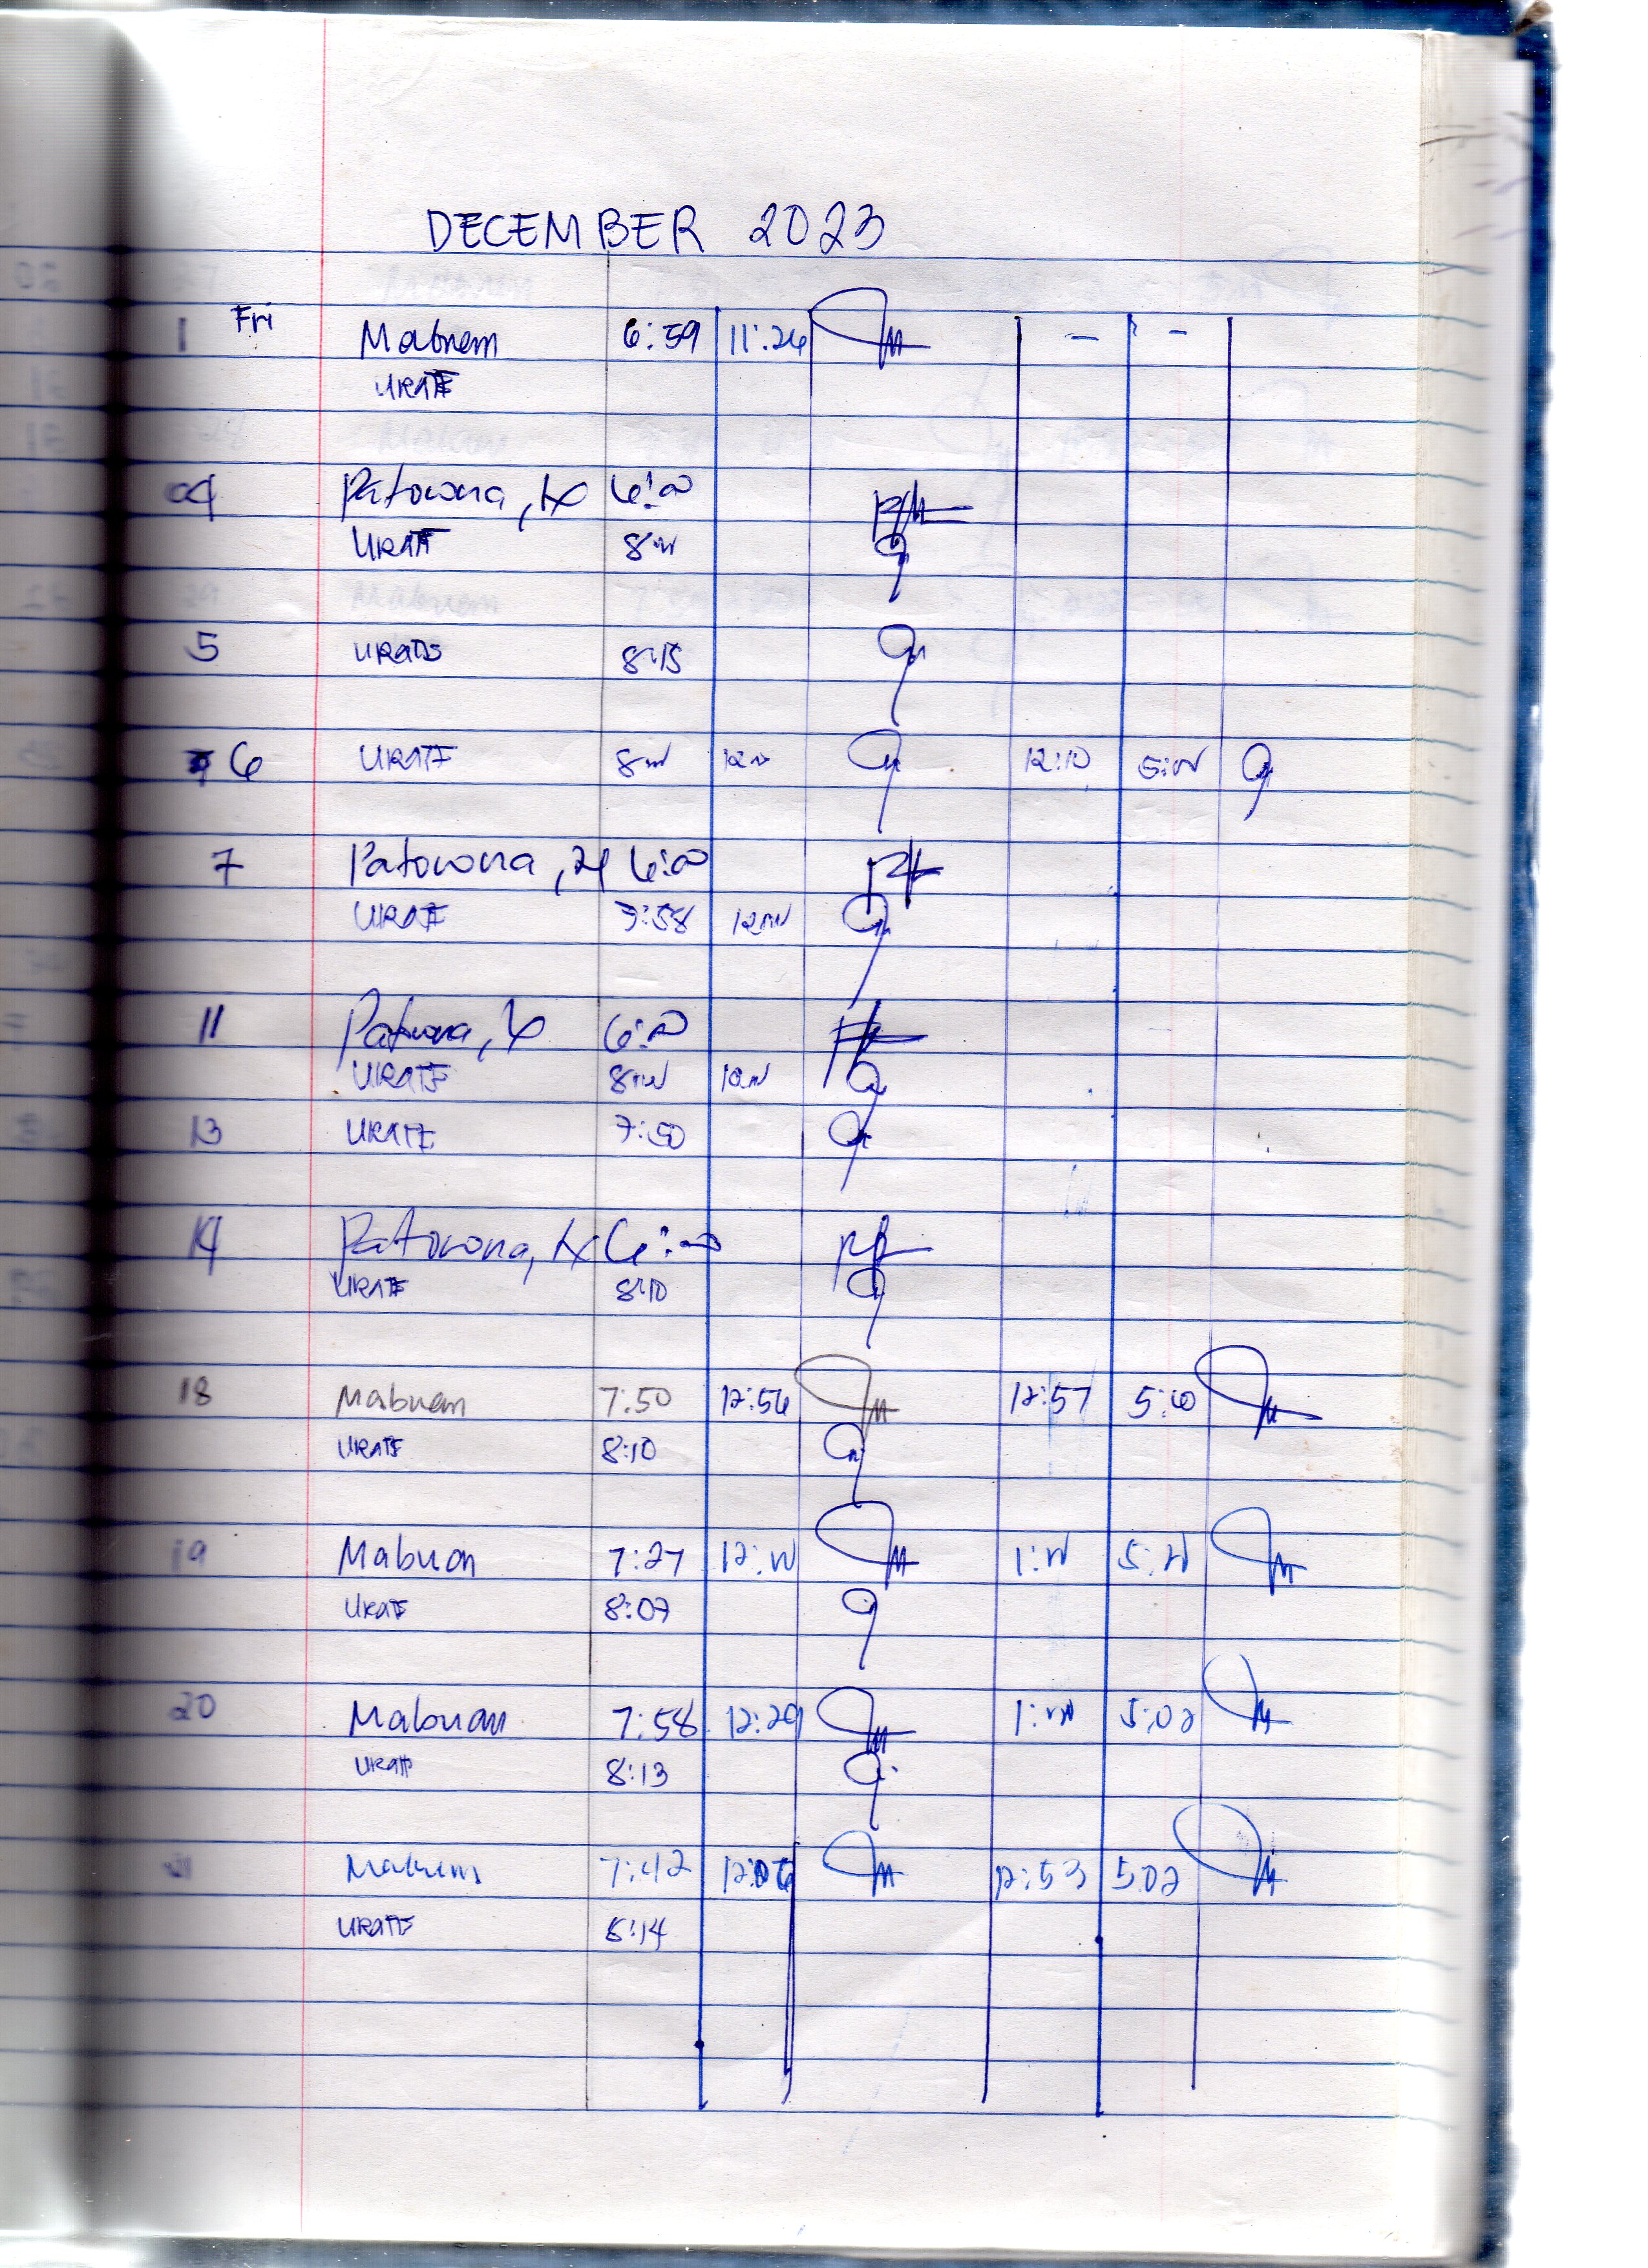 DECEMBER 2023
1 Fri Mabuan 6:59 11:26 - -
URATE
04 Patorona, 6:00
URATE 8
5 URATE 8:15
6 URATE 8 12 12:10 5:00
7 Patorona, 6:00
URATE 7:58 12
11 Patorona, 6:00
URATE 8
13 URATE 7:50
14 Patorona, 6:00
URATE 8:10
18 Mabuan 7:50 12:56 12:57 5:10
URATE 8:10
19 Mabuan 7:27 12:00 1:00 5:00
URATE 8:07
20 Mabuan 7:58 12:29 1:00 5:02
URATE 8:13
21 Mabuan 7:42 12:06 12:53 5:02
URATE 8:14